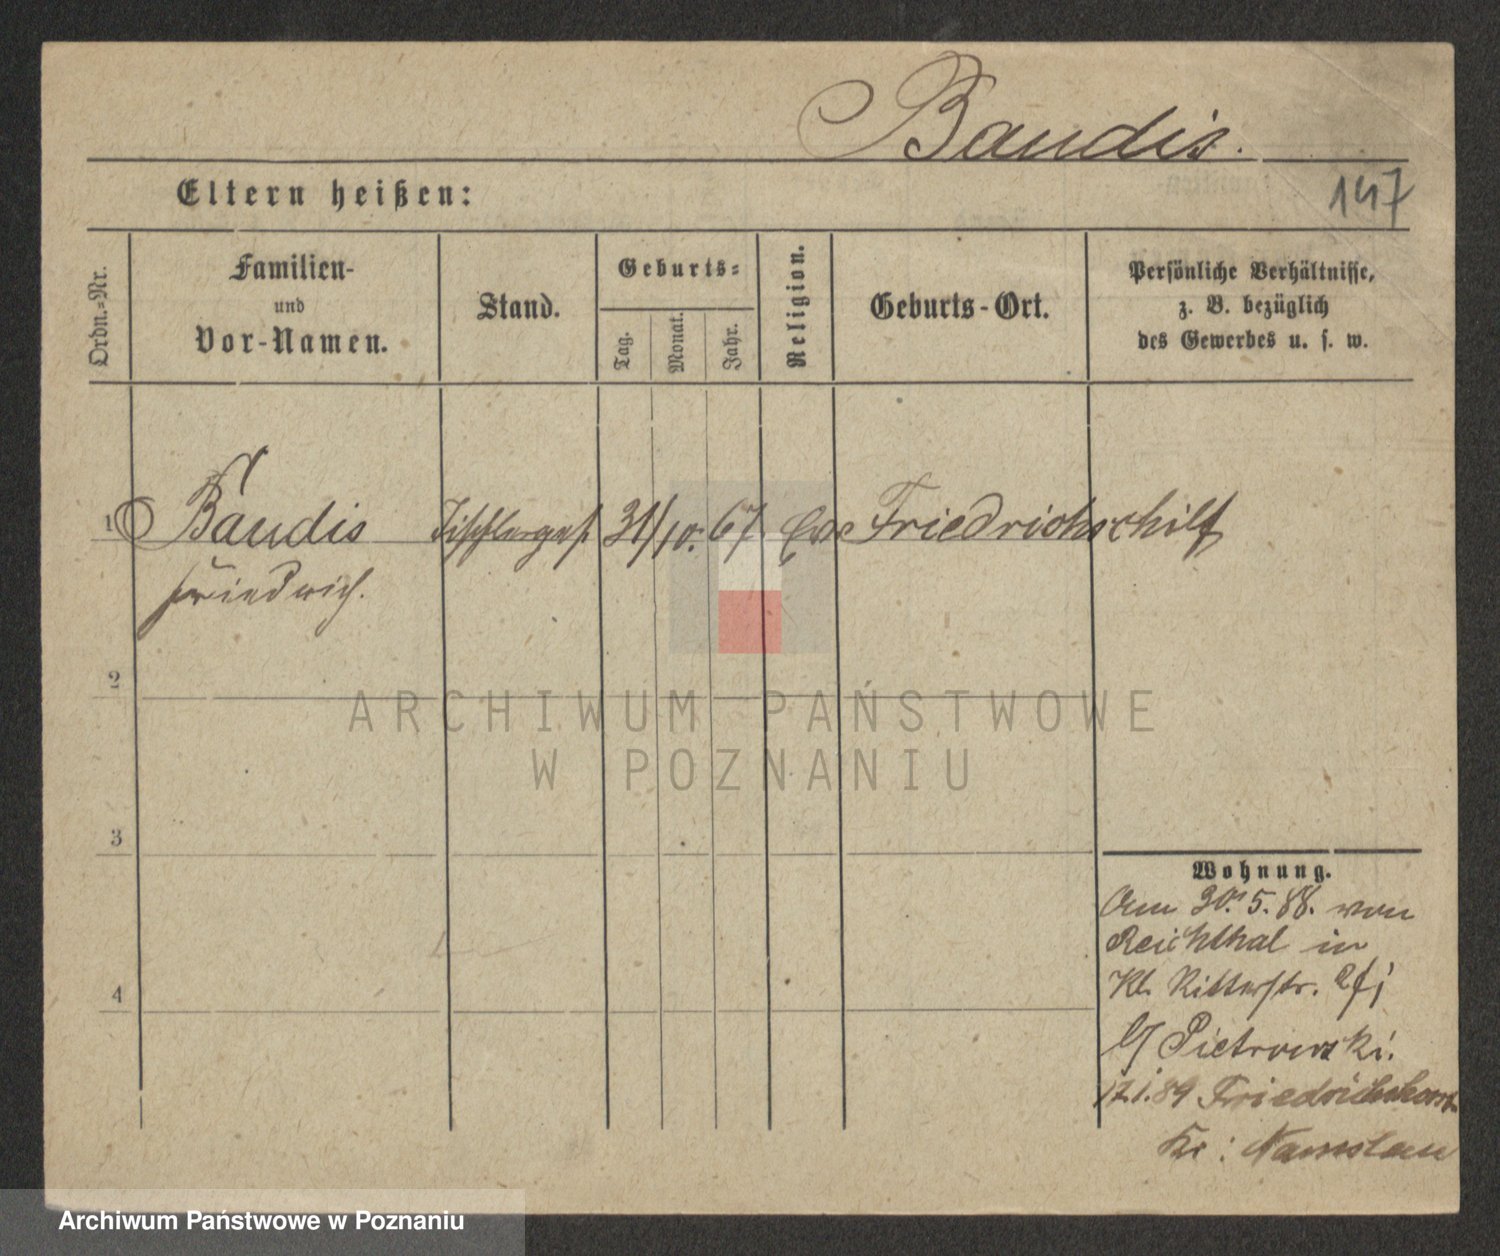 Baudis.
Eltern heißen:
147
Ordn.-Nr.
Familien-
und
Vor-Namen.
Stand.
Geburts-
Tag.
Monat.
Jahr.
Religion.
Geburts-Ort.
Persönliche Verhältnisse,
z. B. bezüglich
des Gewerbes u. s. w.
1 Baudis Tischlerges. 31/10. 67. Friedrichschilf
Friedrich.
2
ARCHIWUM PAŃSTWOWE
W POZNANIU
3
4
Wohnung.
Am 30. 5. 88. von
Reichthal in
Kl. Ritterstr.
b/ Pietrowski.
17.1.89
Kr: Namslau
Archiwum Państwowe w Poznaniu